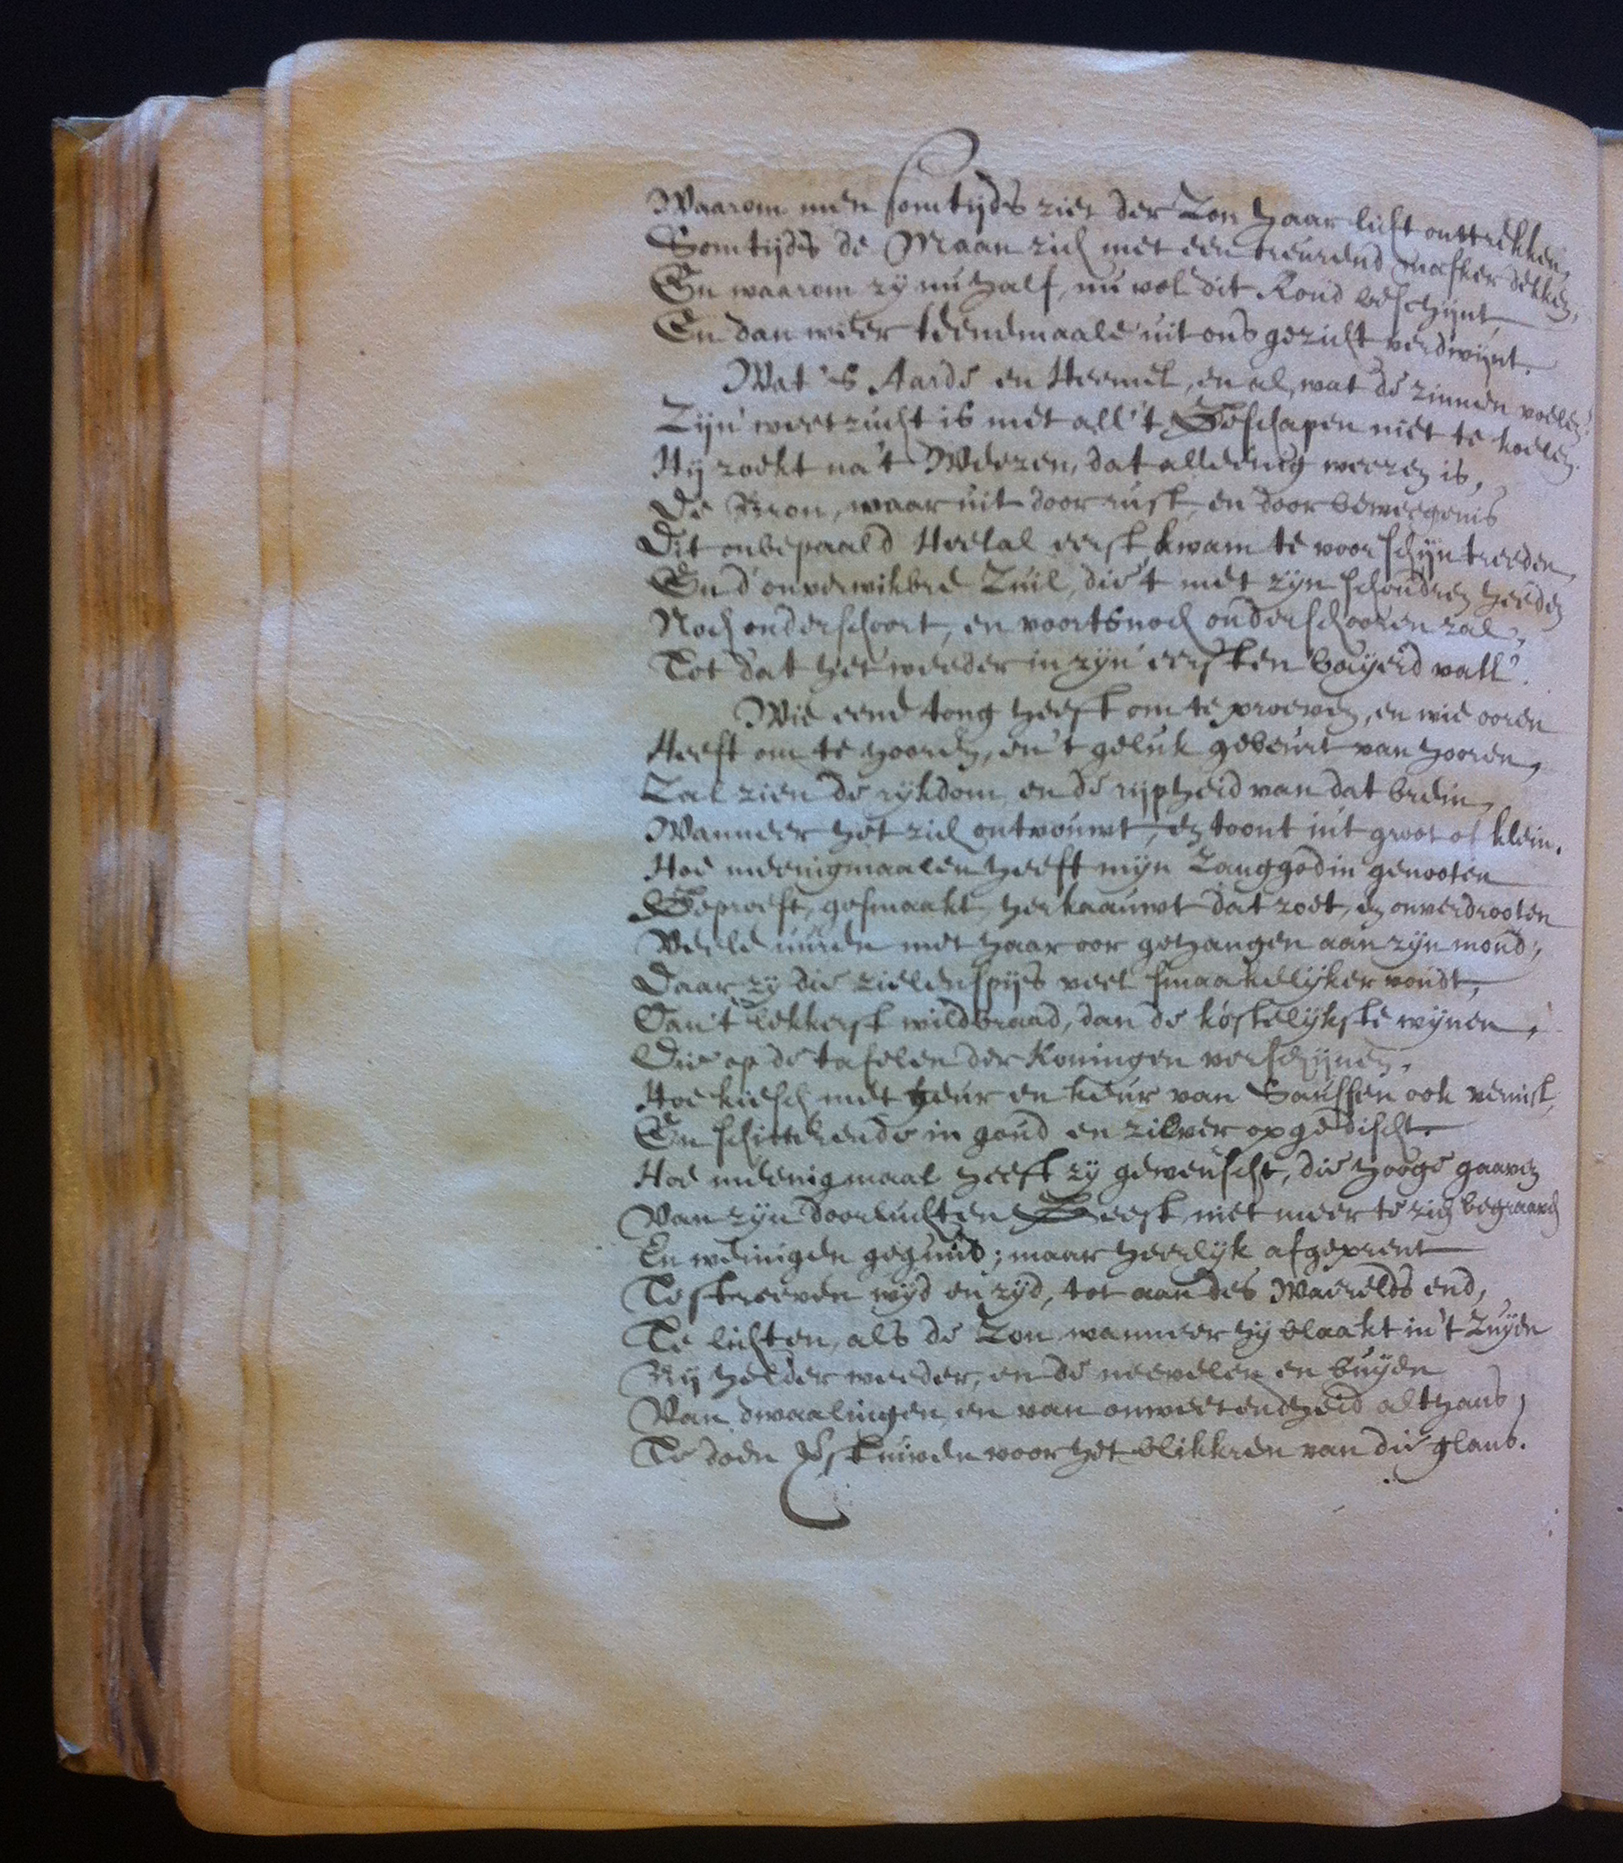 Waarom men somtijds ziet der Zon haar licht onttrekken,
Somtijds de Maan zich met een treurend masker dekken,
En waarom zy nu half, nu vol dit Rond beschynt,
En dan weer teenemaale uit ons gezicht verdwynt.
Wat 's Aarde en Heemel, en al, wat de zinnen voelen?
Zijn' weetzucht is met all 't Geschapen niet te koelen.
Hy zoekt na 't Weezen, dat alleenig weezen is,
De Bron, waar uit door rust, en door beweegenis
Dit onbepaald Heelal eerst kwam te voorschijn treeden,
En d'onverwikbre Zuil, die 't met zyn schoudren heeden
Noch onderschoort, en voorts noch onderschooren zal,
Tot dat het weeder in zyn' eersten bayerd vall'.
Wie eene tong heeft om te proeven, en wie ooren
Heeft om te hooren, en 't geluk gebeurt van hooren,
Zal zien de rykdom en de rijpheid van dat brein,
Wanneer het zich ontvouwt, en toont in 't groot of klein.
Hoe meenigmaalen heeft mijn Zanggodin genooten
Geproeft, gesmaakt, herkaauwt dat zoet, en onverdrooten
Veele uuren met haar oor gehangen aan zyn mond,
Daar zy die zielenspijs veel smaakelyker vondt,
Dan 't lekkerst wildbraad, dan de kostelykste wynen,
Die op de tafelen der Koningen verschynen,
Hoe kiesch met geur en keur van Saussen ook vermist,
En schitterende in goud en zilver opgedischt.
Hoe meenigmaal heeft zy gewenscht, die hooge gaaven
Van zyn doorluchten Geest niet meer te zien begraaven
En weinigen gegund; maar heerlyk afgeprent
Te streeven wyd en zyd, tot aan des Waerelds end,
Te lichten, als de Zon wanneer hy blaakt in 't Zuyden
By helder weeder, en de neevelen en buyen
Van dwaalingen en van onweetendheid althans,
Te doen verstuiven voor het blikkren van die glans.